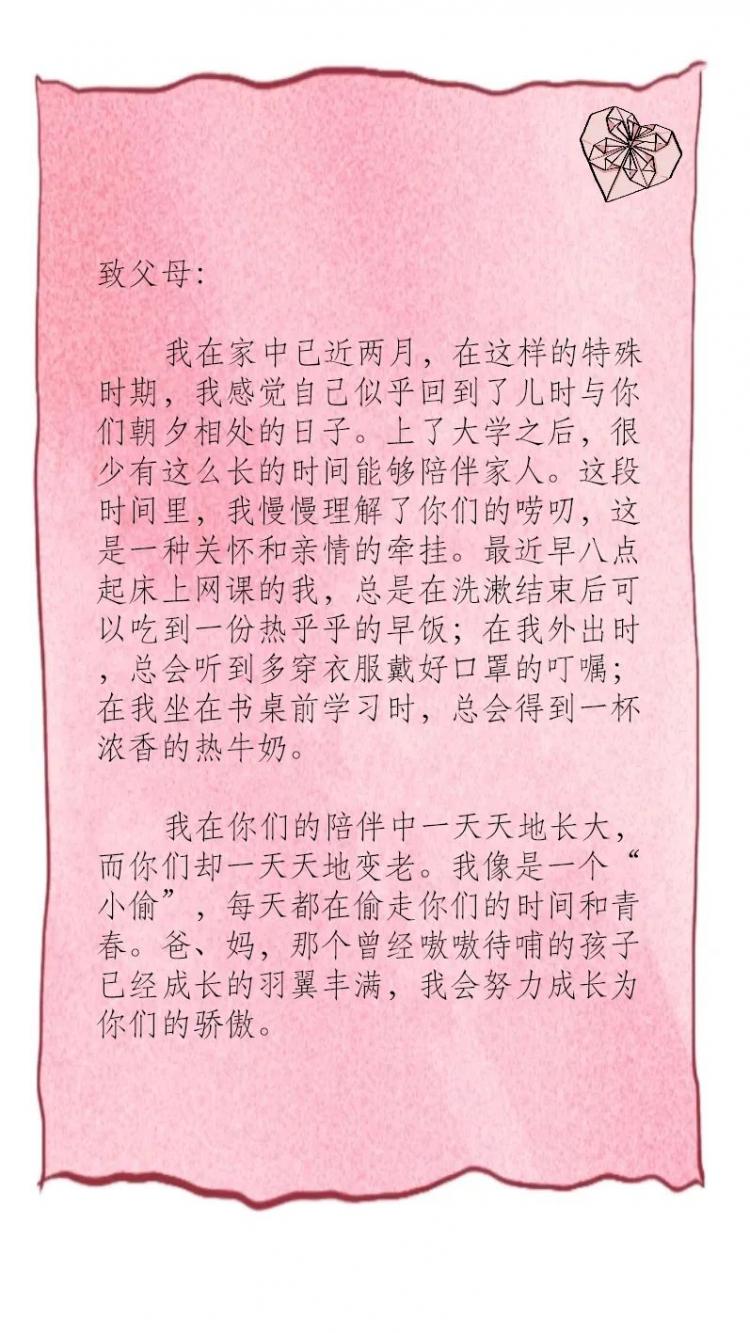 致父母：
我在家中已近两月，在这样的特殊
时期，我感觉自己似乎回到了儿时与你
们朝夕相处的日子。上了大学之后，很
少有这么长的时间能够陪伴家人。这段
时间里，我慢慢理解了你们的唠叨，这
是一种关怀和亲情的牵挂。最近早八点
起床上网课的我，总是在洗漱结束后可
以吃到一份热乎乎的早饭；在我外出时
，总会听到多穿衣服戴好口罩的叮嘱；
在我坐在书桌前学习时，总会得到一杯
浓香的热牛奶。
我在你们的陪伴中一天天地长大，
而你们却一天天地变老。我像是一个“
小偷”，每天都在偷走你们的时间和青
春。爸、妈，那个曾经嗷嗷待哺的孩子
已经成长的羽翼丰满，我会努力成长为
你们的骄傲。